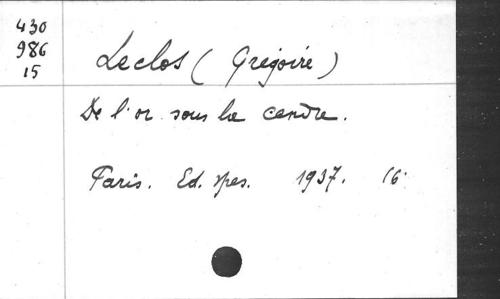 430
986
15
Leclos (Grégoire)
De l'or sous la cendre.
Paris. Ed. Spes. 1937. 16°